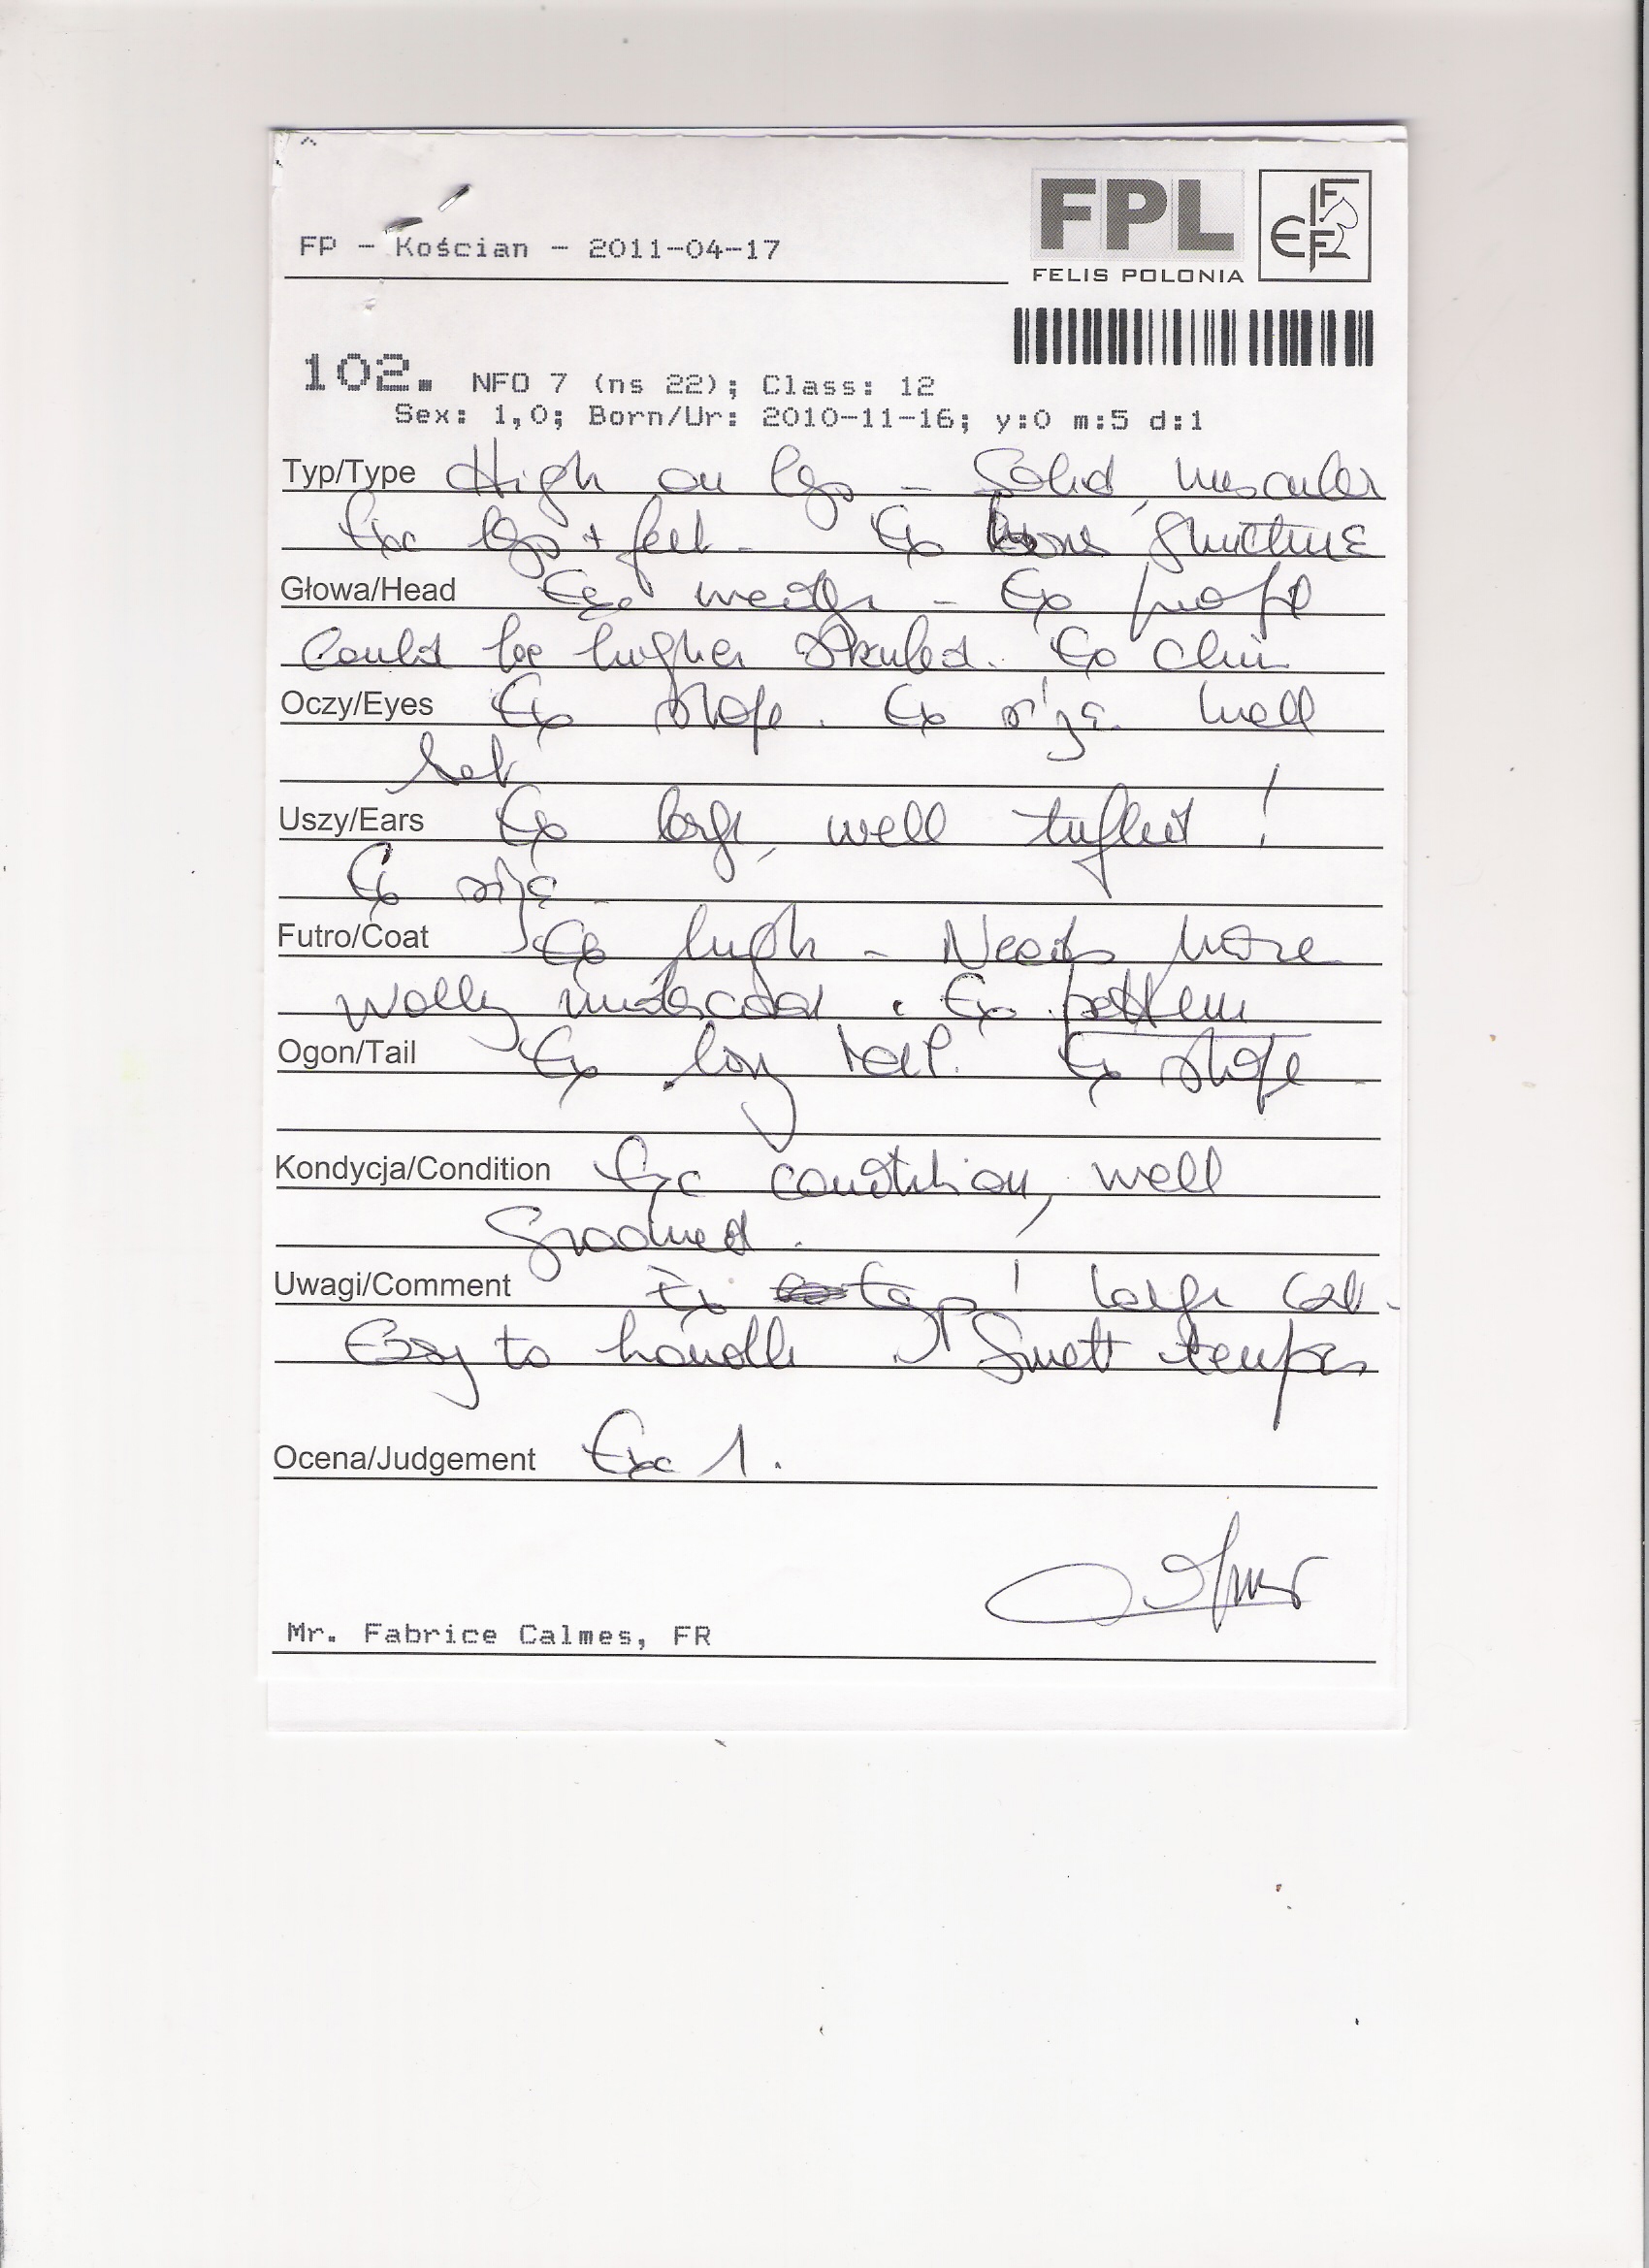 FPL
FELIS POLONIA
FIFE
FP - Kościan - 2011-04-17
102. NFO 7 (ns 22); Class: 12
Sex: 1,0; Born/Ur: 2010-11-16; y:0 m:5 d:1
Typ/Type High on legs - Solid, muscular
Exc legs + feet - Ex bone structure
Głowa/Head Exc - Ex profil
Could be higher skuled. Ex chin
Oczy/Eyes Ex shape. Ex size. Well
set
Uszy/Ears Ex large, well tufted !
Ex size -
Futro/Coat Ex - Needs more
wolly undercoat. Ex pattern
Ogon/Tail Ex long tail. Ex shape -
Kondycja/Condition Exc condition, well
Groomed.
Uwagi/Comment Ex type ! large cat -
Easy to handle ! Swett temper
Ocena/Judgement Exc 1.
Mr. Fabrice Calmes, FR